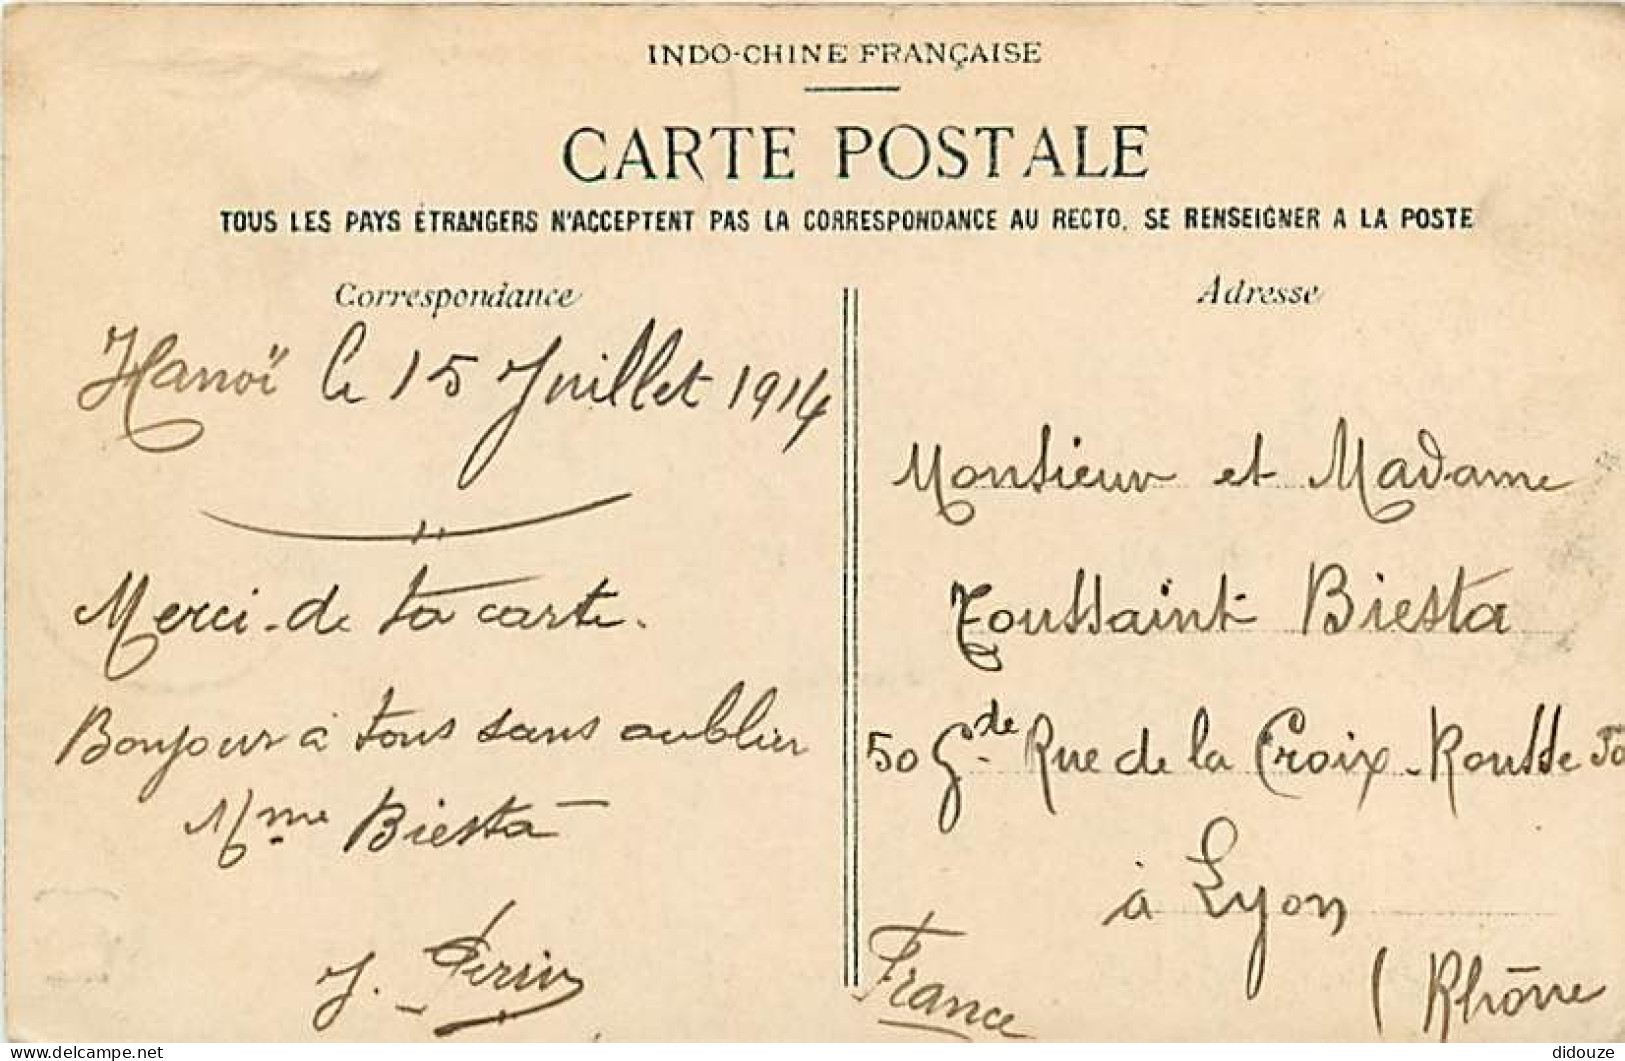 INDO-CHINE FRANÇAISE
CARTE POSTALE
TOUS LES PAYS ÉTRANGERS N'ACCEPTENT PAS LA CORRESPONDANCE AU RECTO, SE RENSEIGNER A LA POSTE
Correspondance
Hanoï le 15 Juillet 1914
Merci de ta carte.
Bonjour à tous sans oublier
Mme Biesta
J. Perrin
Adresse
Monsieur et Madame
Toussaint Biesta
50 Gde Rue de la Croix-Rousse 50
à Lyon
(Rhône
France
delcampe.net
didouze